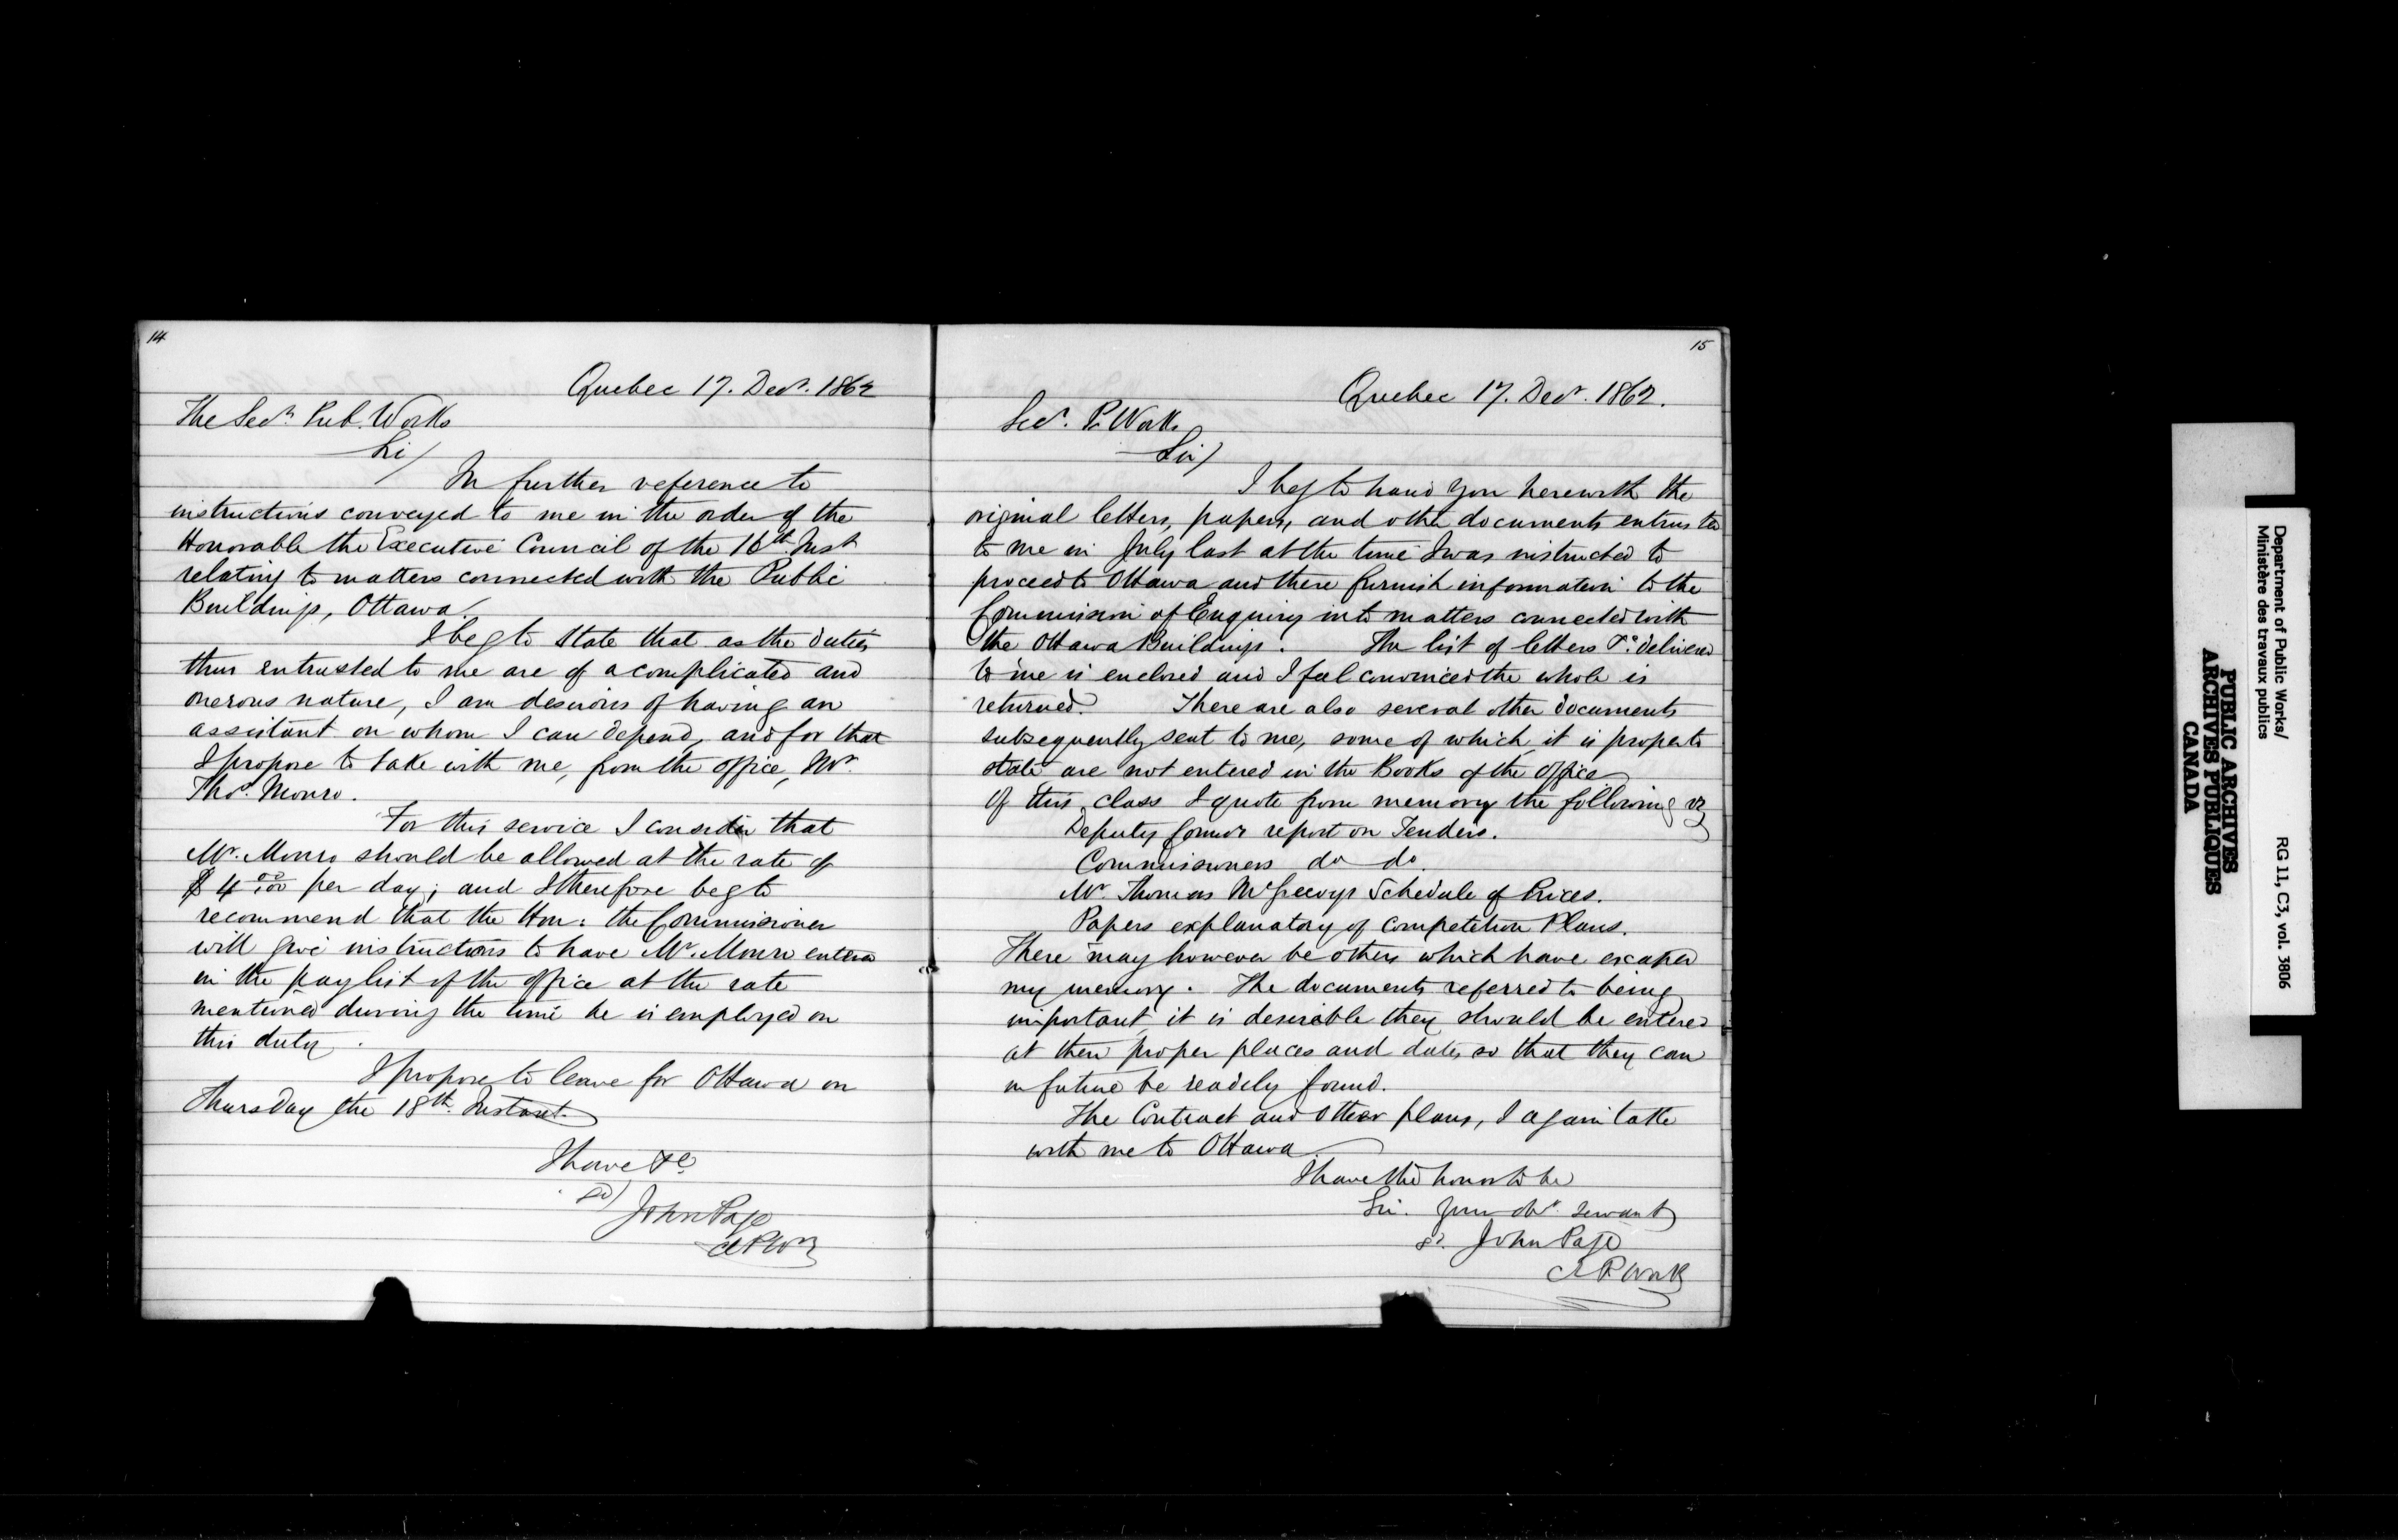 14
Quebec 17. Decr. 1862
The Secy. Pub. Works
Sir/
In further reference to
instructions conveyed to me in the order of the
Honorable the Executive Council of the 16th. Inst
relating to matters connected with the Public
Buildings, Ottawa.
I beg to state that as the duties
thus entrusted to me are of a complicated and
onerous nature, I am desirous of having an
assistant on whom I can depend, and for that
I propose to take with me, from the office, Mr.
Thos. Monro.
For this service I consider that
Mr. Monro should be allowed at the rate of
$ 4 00/100 per day; and I therefore beg to
recommend that the Hon: the Commissioner
will give instructions to have Mr. Monro entered
in the pay list of the office at the rate
mentioned during the time he is employed on
this duty.
I propose to leave for Ottawa on
Thursday the 18th. Instant
I have &c
sd) John Page
CEPWks
15
Quebec 17. Decr. 1862.
Secy. P. Works
Sir/
I beg to hand you herewith the
original letters, papers, and other documents entrusted
to me in July last at the time I was instructed to
proceed to Ottawa and there furnish information to the
Commission of Enquiry into matters connected with
the Ottawa Buildings. The list of letters &c. delivered
to me is enclosed and I feel convinced the whole is
returned. There are also several other documents
subsequently sent to me, some of which it is proper to
state are not entered in the Books of the Office
Of this class I quote from memory the following viz
Deputy Commr report on Tenders.
Commissioners do do
Mr. Thomas McGreevys Schedule of Prices.
Papers explanatory of Competition Plans.
There may however be others which have escaped
my memory. The documents referred to being
important it is desirable they should be entered
at their proper places and dates so that they can
in future be readily found.
The Contract and other plans, I again take
with me to Ottawa
I have the honor to be
Sir. Your obt. servant
sd. John Page
CEPWorks
Department of Public Works/
Ministère des travaux publics
RG 11, C3, vol. 3806
PUBLIC ARCHIVES
ARCHIVES PUBLIQUES
CANADA